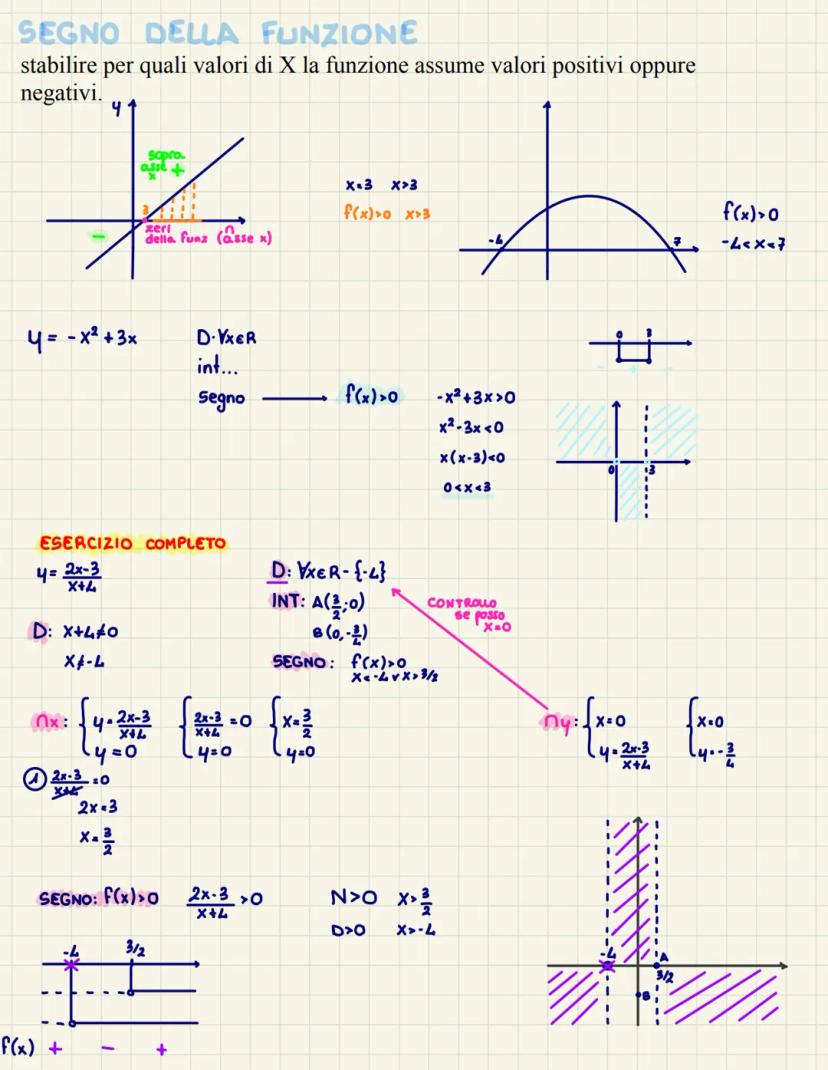 SEGNO DELLA FUNZIONE
stabilire per quali valori di X la funzione assume valori positivi oppure
negativi.
y
sopra
asse +
x
3
-
zeri
della funz (∩ asse x)
x=3 x>3
f(x)>0 x>3
-4
7
f(x)>0
-4<x<7
y = -x² + 3x
D: ∀x∈R
int...
segno
f(x)>0
-x²+3x>0
x²-3x<0
x(x-3)<0
0<x<3
0 3
- + -
0 3
ESERCIZIO COMPLETO
y = 2x-3/x+4
D: x+4≠0
x≠-4
D: ∀x∈R - {-4}
INT: A(3/2;0)
B(0,-3/4)
SEGNO: f(x)>0
x<-4 v x>3/2
CONTROLLO
se posso
x=0
∩x: { y = 2x-3/x+4 { 2x-3/x+4 = 0 { x = 3/2
y=0 y=0 y=0
∩y: { x=0 { x=0
y = 2x-3/x+4 y = -3/4
① 2x-3/x+4 = 0
2x=3
x = 3/2
SEGNO: f(x)>0 2x-3/x+4 >0
N>0 x>3/2
D>0 x>-4
-4 3/2
f(x) + - +
-4
A
3/2
B